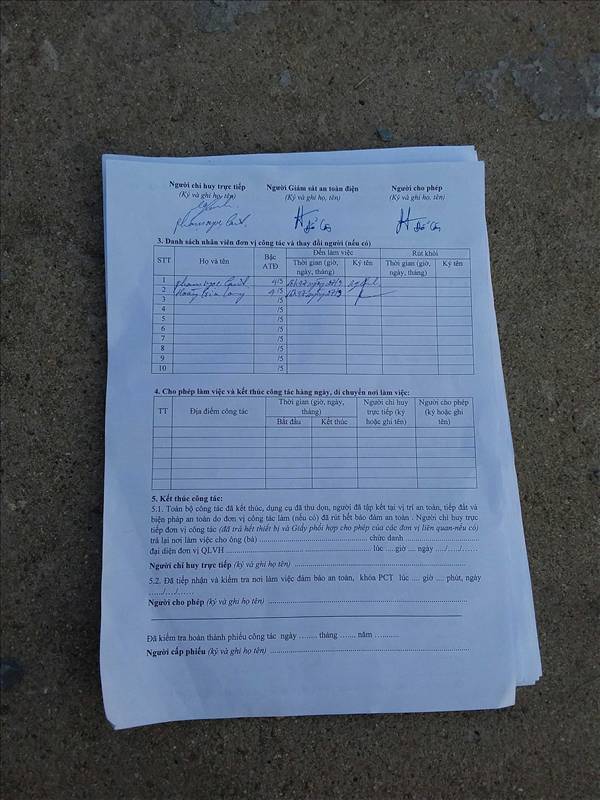 Người chỉ huy trực tiếp Người Giám sát an toàn điện Người cho phép
(Ký và ghi họ, tên) (Ký và ghi họ, tên) (Ký và ghi họ, tên)
3. Danh sách nhân viên đơn vị công tác và thay đổi người (nếu có)
STT Họ và tên Bậc ATĐ Đến làm việc Rút khỏi
Thời gian (giờ, ngày, tháng) Ký tên Thời gian (giờ, ngày, tháng) Ký tên
1 4/5
2 4/5
3 /5
4 /5
5 /5
6 /5
7 /5
8 /5
9 /5
10 /5
4. Cho phép làm việc và kết thúc công tác hàng ngày, di chuyển nơi làm việc:
TT Địa điểm công tác Thời gian (giờ, ngày, tháng) Người chỉ huy trực tiếp (ký hoặc ghi tên) Người cho phép (ký hoặc ghi tên)
Bắt đầu Kết thúc
5. Kết thúc công tác:
5.1. Toàn bộ công tác đã kết thúc, dụng cụ đã thu dọn, người đã tập kết tại vị trí an toàn, tiếp đất và
biện pháp an toàn do đơn vị công tác làm (nếu có) đã rút hết bảo đảm an toàn . Người chỉ huy trực
tiếp đơn vị công tác (đã trả hết thiết bị và Giấy phối hợp cho phép của các đơn vị liên quan-nếu có)
trả lại nơi làm việc cho ông (bà) ........................ chức danh ........................
đại diện đơn vị QLVH ........................ lúc .... giờ .... ngày ..../..../......
Người chỉ huy trực tiếp (ký và ghi họ tên) ........................
5.2. Đã tiếp nhận và kiểm tra nơi làm việc đảm bảo an toàn, khóa PCT lúc .... giờ .... phút, ngày
....../..../......
Người cho phép (ký và ghi họ tên) ........................
Đã kiểm tra hoàn thành phiếu công tác ngày ........ tháng ....... năm ..........
Người cấp phiếu (ký và ghi họ tên) ........................